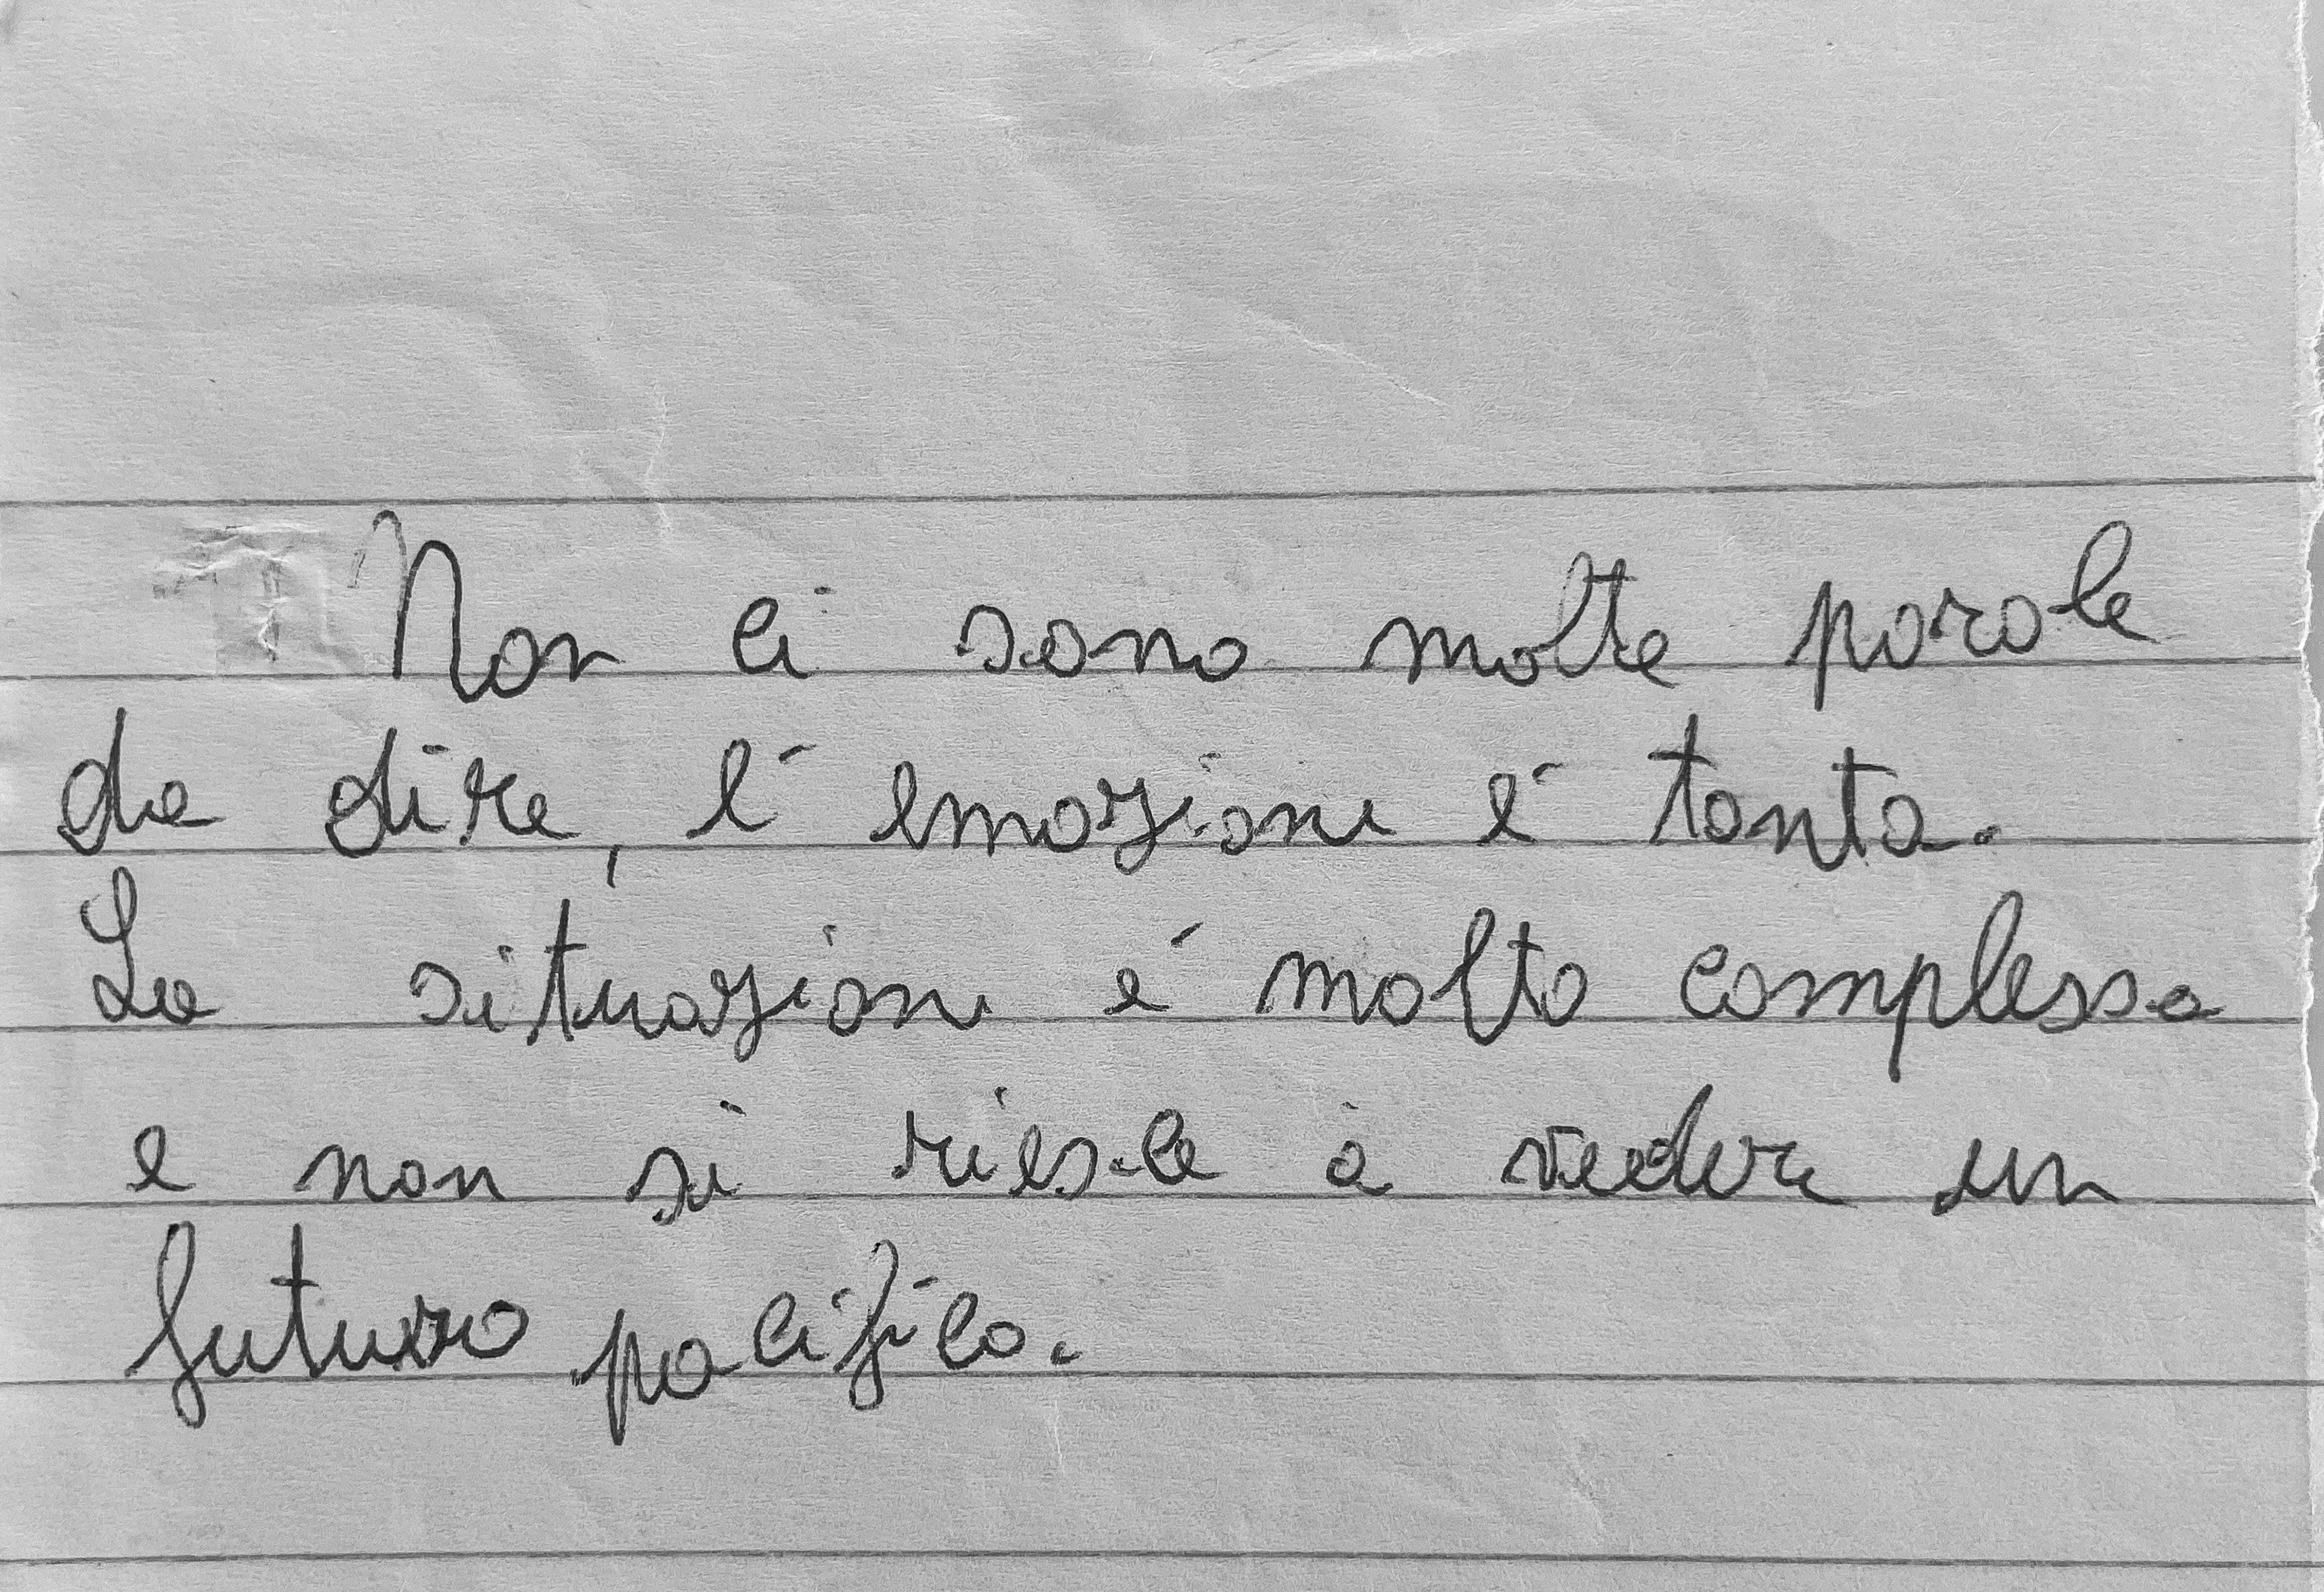 Non ci sono molte parole
da dire, l'emozione é tanta.
La situazione é molto complessa
e non si riesce à vedere un
futuro pacifico.